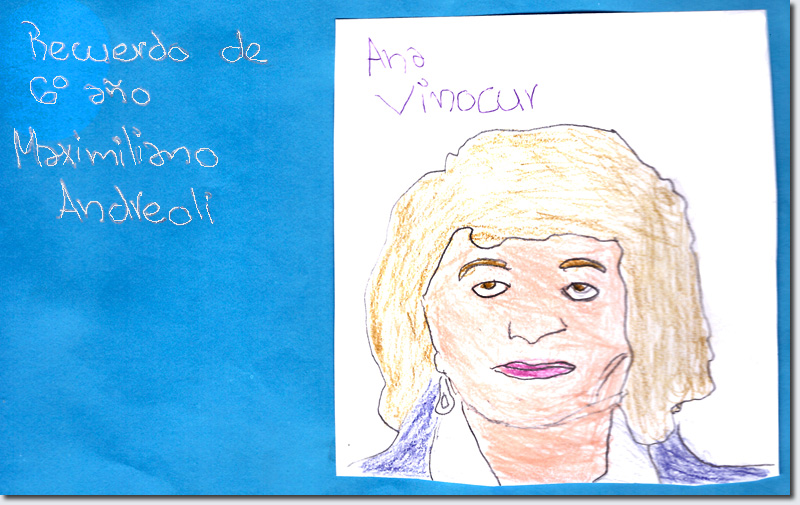 Recuerdo de
6º año
Maximiliano
Andreoli
Ana
Vinocur